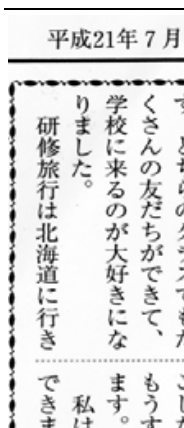 平成21年7月
す。どちらのクラスでもた
くさんの友だちができて、
学校に来るのが大好きにな
りました。
研修旅行は北海道に行き
もうす
ます。
私は
できま